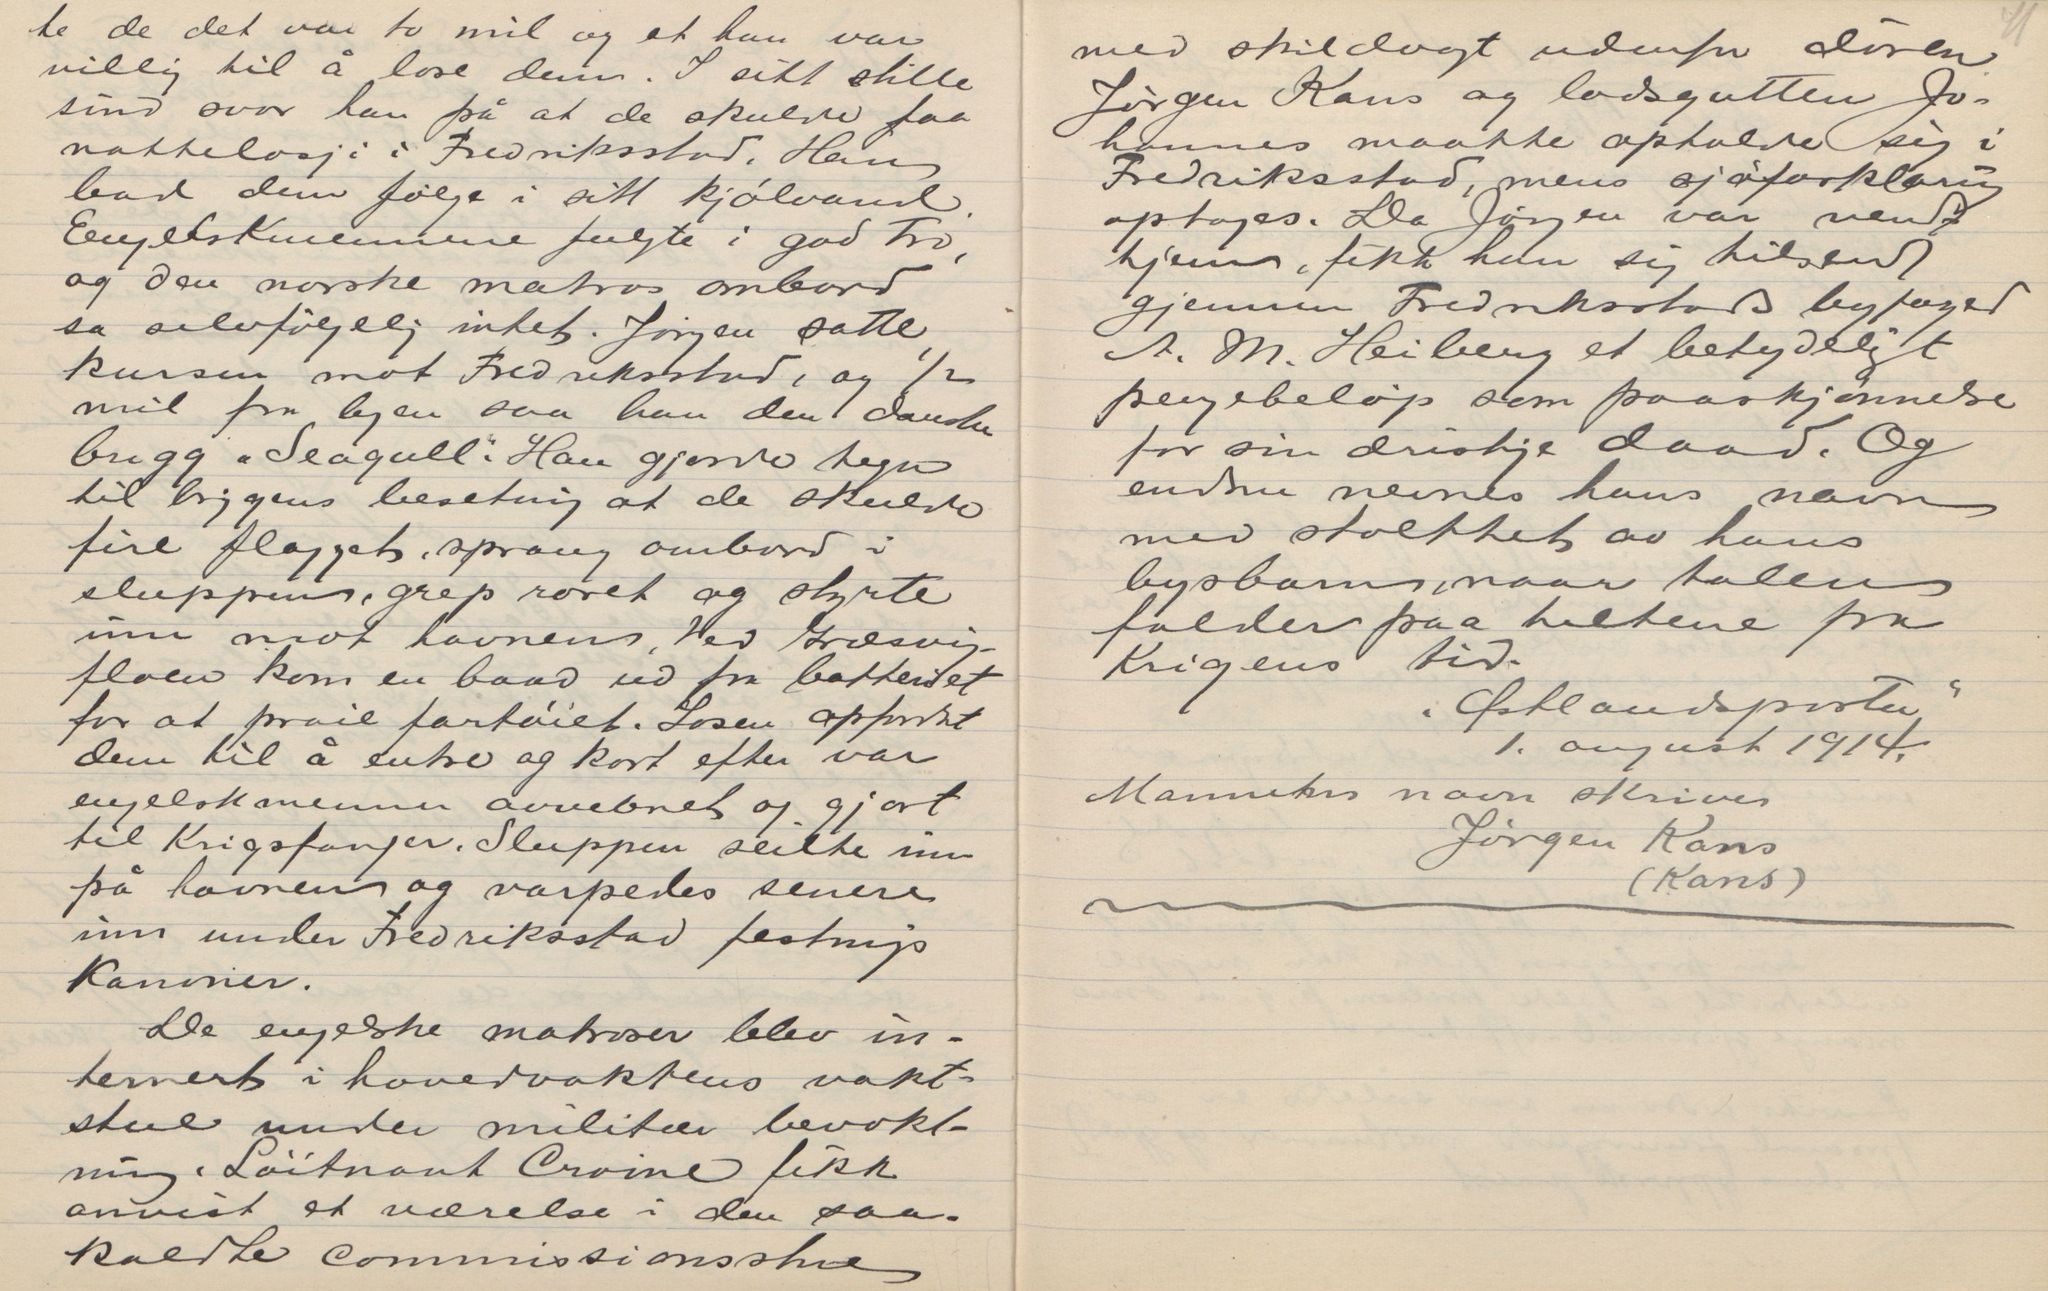 te de det var to mil og et han var
villig til å lose dem. I sitt stille
sind svor han på at de skulde faa
nattelosji i Fredriksstad. Han
bad dem følge i sitt kjölvand.
Engelskmennene fulgte i god tro,
og den norske matros ombord
sa selvfölgelig intet. Jörgen satte
kursen mot Fredriksstad, og 1/2
mil fra byen saa han den danske
brigg "Seagull". Han gjorde tegn
til briggens besetning at de skulde
fire flagget, sprang ombord i
sluppen, grep roret og styrte
inn mot havnen. Ved Græsvig-
floen kom en baad ud fra batteriet
for at praie fartöiet. Losen opfordret
dem til å entre og kort efter var
engelskmennene avvebnet og gjort
til Krigsfanger. Sluppen seilte inn
på havnen og varpedes senere
inn under Fredriksstad festnings
Kanoner.
De engelske matroser blev in-
ternert i hovedvaktens vakt-
stue under militær bevokt-
ning. Löitnant Croine fikk
anvist et værelse i den saa-
kaldte commissionsstue
41
med skildvagt udenfor dören
Jörgen Kans og lodsgutten Jo-
hannes maatte opholde sig i
Fredriksstad, mens sjöforklaring
optoges. Da Jörgen var vendt
hjem, fikk han sig tilsendt
gjennem Fredriksstads byfoged
A. M. Heiberg et betydeligt
pengebelöp som paaskjönnelse
for sin dristige daad. Og
endnu nevnes hans navn
med stolthet av hans
bysbarn, naar talen
falder paa heltene fra
Krigens tid.
"Østlandsposten"
1. august 1914.
Mannens navn skrives
Jörgen Kans
(Kans)